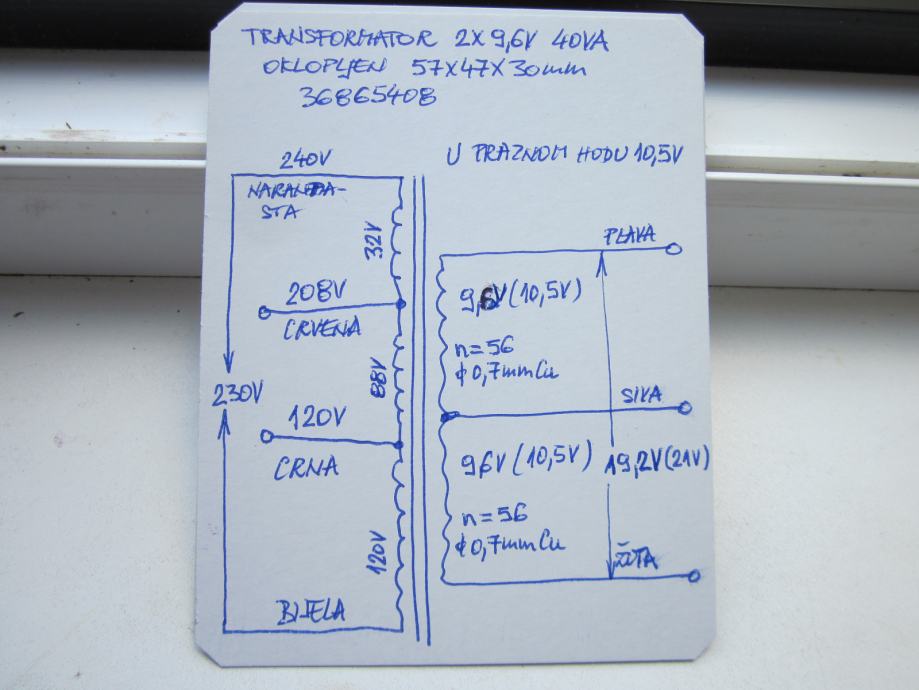 TRANSFORMATOR 2X9,6V 40VA
OKLOPLJEN 57X47X30mm
36865408
240V
U PRAZNOM HODU 10,5V
NARANDA-
STA
32V
PLAVA
208V
9,6V (10,5V)
CRVENA
n=56
ϕ0,7mmCu
88V
230V
SIVA
120V
CRNA
9,6V (10,5V)
19,2V(21V)
n=56
ϕ0,7mmCu
120V
ŽUTA
BIJELA